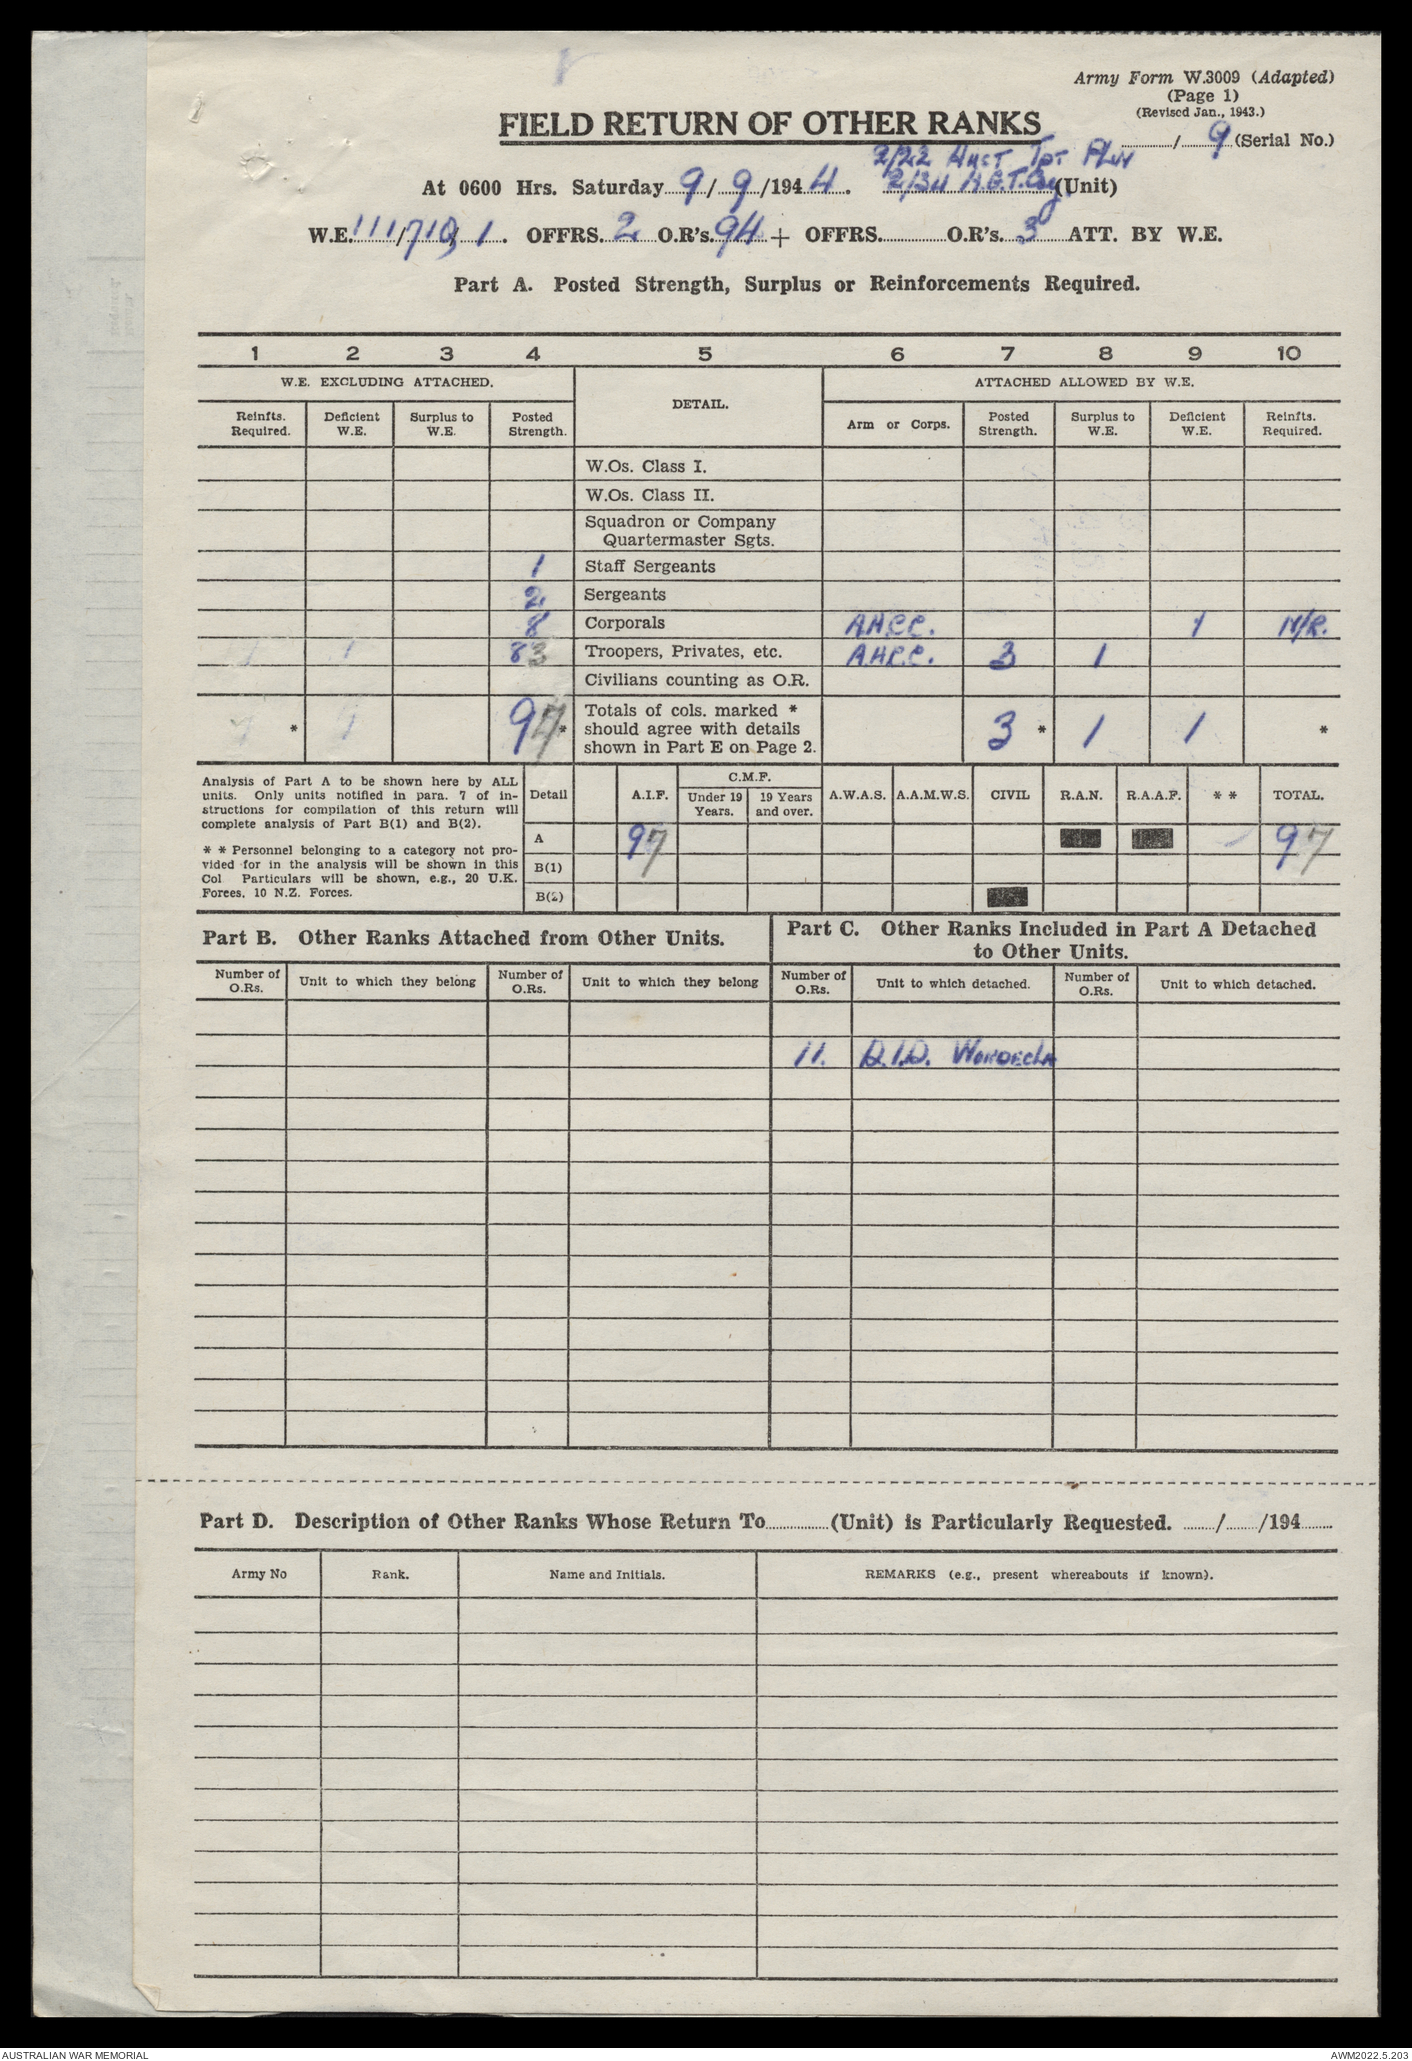 Army Form W.3009 (Adapted)
(Page 1)
(Revised Jan., 1943.)
FIELD RETURN OF OTHER RANKS
/ 9 (Serial No.)
2/22 Aust Tpt Pltn
At 0600 Hrs. Saturday 9/9/1944. 2/34 A.G.T.Coy. (Unit)
W.E. 111/710/1. OFFRS. 2 O.R's. 94 + OFFRS. O.R's. 3 ATT. BY W.E.
Part A. Posted Strength, Surplus or Reinforcements Required.
1 2 3 4 5 6 7 8 9 10
W.E. EXCLUDING ATTACHED. DETAIL. ATTACHED ALLOWED BY W.E.
Reinfts. Required. Deficient W.E. Surplus to W.E. Posted Strength. Arm or Corps. Posted Strength. Surplus to W.E. Deficient W.E. Reinfts. Required.
W.Os. Class I.
W.Os. Class II.
Squadron or Company
Quartermaster Sgts.
1 Staff Sergeants
2 Sergeants
8 Corporals A.A.C.C. 1 N/R.
1 1 83 Troopers, Privates, etc. A.A.C.C. 3 1
Civilians counting as O.R.
1 * 1 97 * Totals of cols. marked * should agree with details shown in Part E on Page 2. 3 * 1 1 *
Analysis of Part A to be shown here by ALL
units. Only units notified in para. 7 of in-
structions for compilation of this return will
complete analysis of Part B(1) and B(2).
* * Personnel belonging to a category not pro-
vided for in the analysis will be shown in this
Col Particulars will be shown, e.g., 20 U.K.
Forces, 10 N.Z. Forces.
Detail A.I.F. C.M.F. Under 19 Years. 19 Years and over. A.W.A.S. A.A.M.W.S. CIVIL R.A.N. R.A.A.F. * * TOTAL.
A 97 97
B(1)
B(2)
Part B. Other Ranks Attached from Other Units.
Part C. Other Ranks Included in Part A Detached
to Other Units.
Number of O.Rs. Unit to which they belong Number of O.Rs. Unit to which they belong Number of O.Rs. Unit to which detached. Number of O.Rs. Unit to which detached.
11. D.I.D. Wondecla
Part D. Description of Other Ranks Whose Return To (Unit) is Particularly Requested. / /194
Army No Rank. Name and Initials. REMARKS (e.g., present whereabouts if known).
AUSTRALIAN WAR MEMORIAL AWM2022.5.203